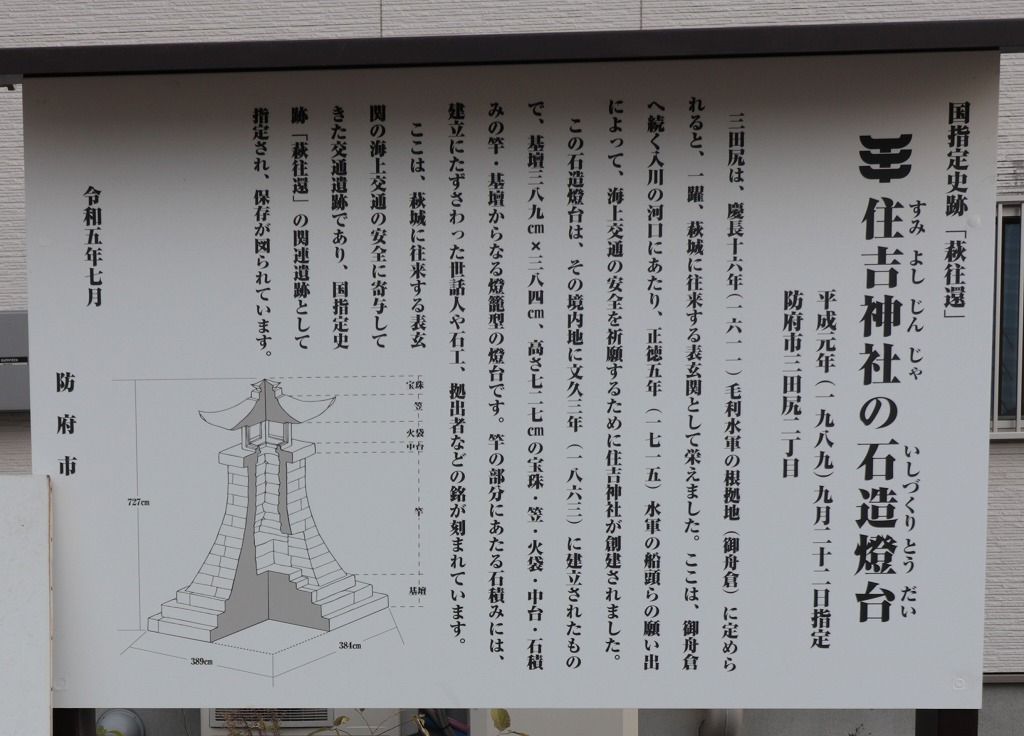 国指定史跡「萩往還」
住吉神社の石造燈台
すみ よし じん じゃ いしづくりとう だい
平成元年（一九八九）九月二十二日指定
防府市三田尻二丁目
三田尻は、慶長十六年（一六一一）毛利水軍の根拠地（御舟倉）に定めら
れると、一躍、萩城に往来する表玄関として栄えました。ここは、御舟倉
へ続く入川の河口にあたり、正徳五年（一七一五）水軍の船頭らの願い出
によって、海上交通の安全を祈願するために住吉神社が創建されました。
この石造燈台は、その境内地に文久三年（一八六三）に建立されたもの
で、基壇三八九㎝×三八四㎝、高さ七二七㎝の宝珠・笠・火袋・中台・石積
みの竿・基壇からなる燈籠型の燈台です。竿の部分にあたる石積みには、
建立にたずさわった世話人や石工、拠出者などの銘が刻まれています。
ここは、萩城に往来する表玄
関の海上交通の安全に寄与して
きた交通遺跡であり、国指定史
跡「萩往還」の関連遺跡として
指定され、保存が図られています。
令和五年七月
防府市
宝珠
笠
火袋
中台
竿
基壇
727㎝
389㎝
384㎝